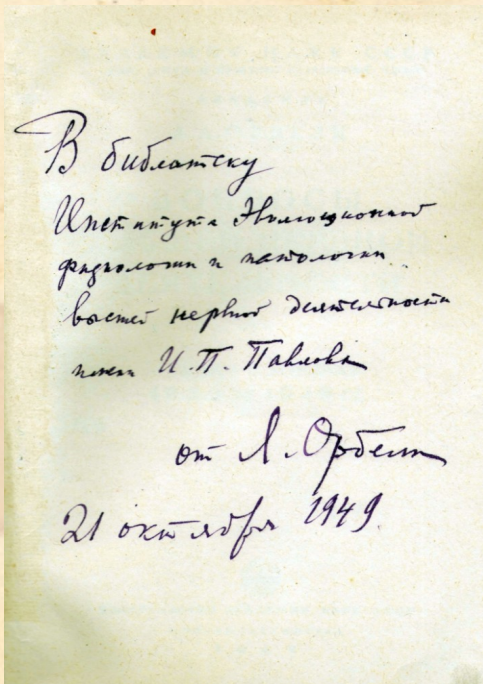 В библиотеку
Института Эволюционной
физиологии и патологии
высшей нервной деятельности
имени И. П. Павлова
от Л. Орбели
21 октября 1949.